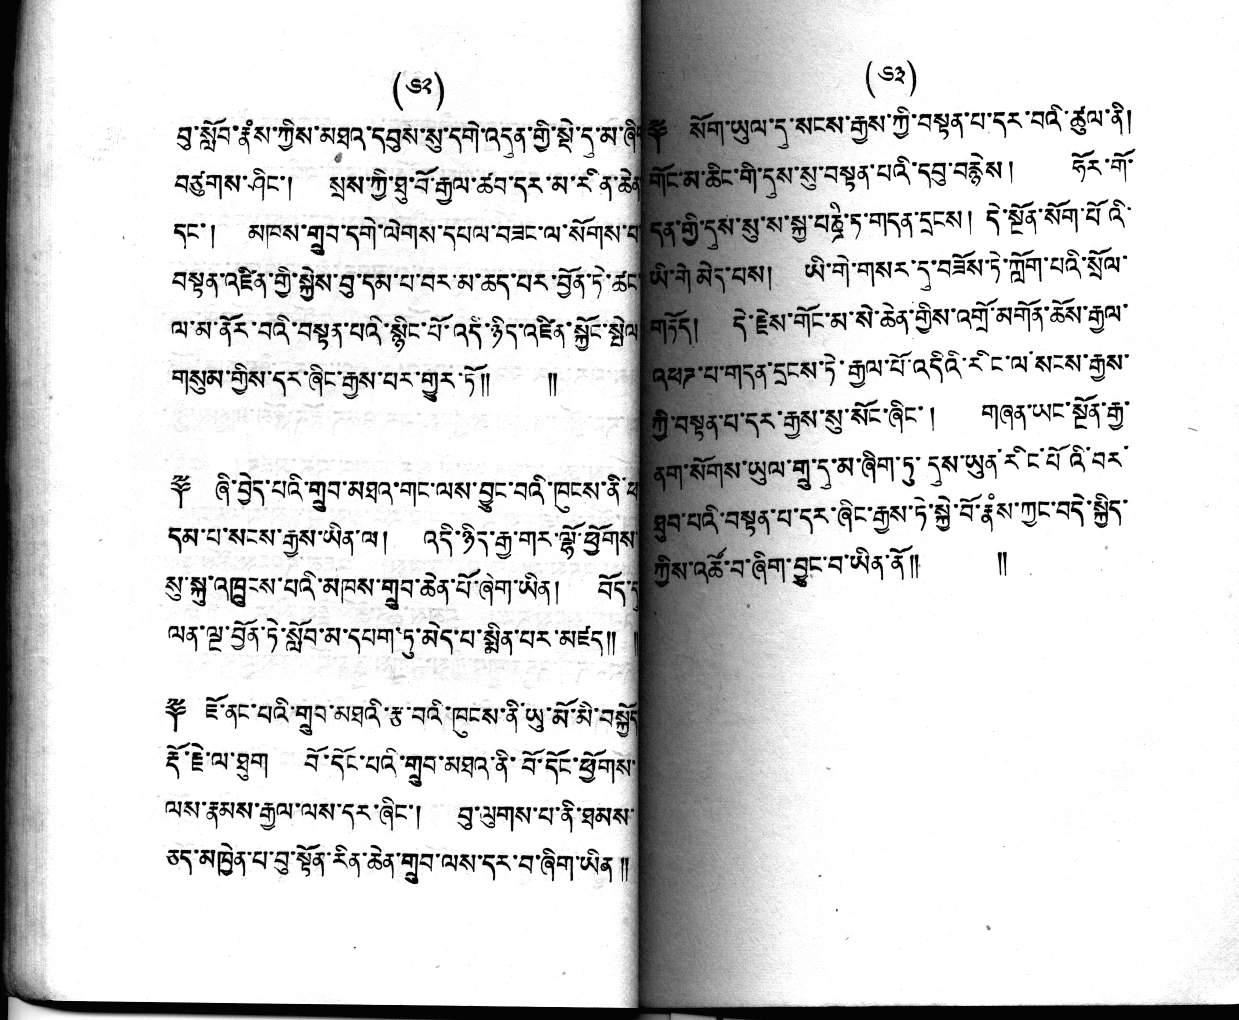 (༦༢)
བུ་སློབ་རྣམས་ཀྱིས་མཐའ་དབུས་སུ་དགེ་འདུན་གྱི་སྡེ་དུ་མ་ཞིག
བཙུགས་ཤིང་། སྲས་ཀྱི་ཐུ་བོ་རྒྱལ་ཚབ་དར་མ་རིན་ཆེན
དང་། མཁས་གྲུབ་དགེ་ལེགས་དཔལ་བཟང་ལ་སོགས་པ
བསྟན་འཛིན་གྱི་སྐྱེས་བུ་དམ་པ་བར་མ་ཆད་པར་བྱོན་ཏེ་ཚང
ལ་མ་ནོར་བའི་བསྟན་པའི་སྙིང་པོ་འདི་ཉིད་འཛིན་སྐྱོང་སྤེལ
གསུམ་གྱིས་དར་ཞིང་རྒྱས་པར་གྱུར་ཏོ༎ ༎
༈ ཞི་བྱེད་པའི་གྲུབ་མཐའ་གང་ལས་བྱུང་བའི་ཁུངས་ནི་ཕ
དམ་པ་སངས་རྒྱས་ཡིན་ལ། འདི་ཉིད་རྒྱ་གར་ལྷོ་ཕྱོགས་
སུ་སྐུ་འཁྲུངས་པའི་མཁས་གྲུབ་ཆེན་པོ་ཞིག་ཡིན། བོད་དུ
ལན་ལྔ་བྱོན་ཏེ་སློབ་མ་དཔག་ཏུ་མེད་པ་སྨིན་པར་མཛད༎ ༎
༈ ཇོ་ནང་པའི་གྲུབ་མཐའི་རྩ་བའི་ཁུངས་ནི་ཡུ་མོ་མི་བསྐྱོད
རྡོ་རྗེ་ལ་ཐུག བོ་དོང་པའི་གྲུབ་མཐའ་ནི་བོ་དོང་ཕྱོགས་
ལས་རྣམས་རྒྱལ་ལས་དར་ཞིང་། བུ་ལུགས་པ་ནི་ཐམས་
ཅད་མཁྱེན་པ་བུ་སྟོན་རིན་ཆེན་གྲུབ་ལས་དར་བ་ཞིག་ཡིན༎
(༦༣)
༈ སོག་ཡུལ་དུ་སངས་རྒྱས་ཀྱི་བསྟན་པ་དར་བའི་ཚུལ་ནི།
གོང་མ་ཆིང་གི་དུས་སུ་བསྟན་པའི་དབུ་བརྙེས། ཧོར་གོ་
དན་གྱི་དུས་སུ་ས་སྐྱ་པཎྜི་ཏ་གདན་དྲངས། དེ་སྔོན་སོག་པོ་འི་
ཡི་གེ་མེད་པས། ཡི་གེ་གསར་དུ་བཟོས་ཏེ་ཀློག་པའི་སྲོལ་
གཏོད། དེ་རྗེས་གོང་མ་སེ་ཆེན་གྱིས་འགྲོ་མགོན་ཆོས་རྒྱལ་
འཕགས་པ་གདན་དྲངས་ཏེ་རྒྱལ་པོ་འདིའི་རིང་ལ་སངས་རྒྱས་
ཀྱི་བསྟན་པ་དར་རྒྱས་སུ་སོང་ཞིང་། གཞན་ཡང་སྔོན་རྒྱ་
ནག་སོགས་ཡུལ་གྲུ་དུ་མ་ཞིག་ཏུ་དུས་ཡུན་རིང་པོ་འི་བར་
ཐུབ་པའི་བསྟན་པ་དར་ཞིང་རྒྱས་ཏེ་སྐྱེ་བོ་རྣམས་ཀྱང་བདེ་སྐྱིད་
ཀྱིས་འཚོ་བ་ཞིག་བྱུང་བ་ཡིན་ནོ༎ ༎